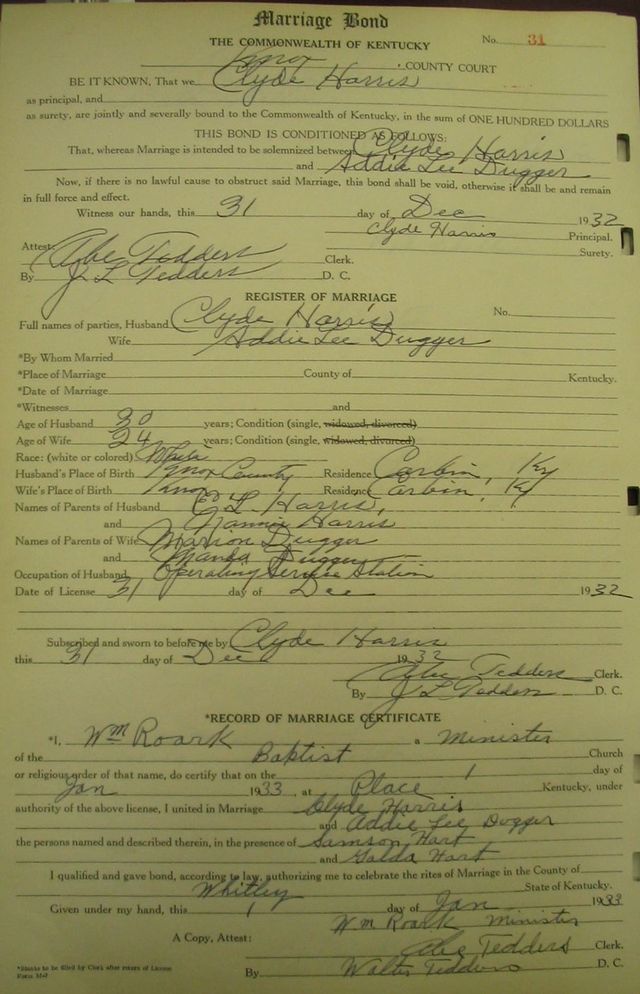 Marriage Bond
THE COMMONWEALTH OF KENTUCKY No. 31
Knox COUNTY COURT
BE IT KNOWN, That we Clyde Harris
as principal, and
as surety, are jointly and severally bound to the Commonwealth of Kentucky, in the sum of ONE HUNDRED DOLLARS
THIS BOND IS CONDITIONED AS FOLLOWS:
That, whereas Marriage is intended to be solemnized between Clyde Harris
and Addie Lee Dugger
Now, if there is no lawful cause to obstruct said Marriage, this bond shall be void, otherwise it shall be and remain
in full force and effect.
Witness our hands, this 31 day of Dec 1932
Clyde Harris Principal.
Surety.
Attest: Abe Tedders Clerk.
By J L Tedders D. C.
REGISTER OF MARRIAGE
Full names of parties, Husband Clyde Harris No.
Wife Addie Lee Dugger
*By Whom Married
*Place of Marriage County of Kentucky.
*Date of Marriage
*Witnesses and
Age of Husband 30 years; Condition (single, widowed, divorced)
Age of Wife 24 years; Condition (single, widowed, divorced)
Race: (white or colored) White
Husband's Place of Birth Knox County Residence Corbin, Ky
Wife's Place of Birth Knox Residence Corbin, Ky
Names of Parents of Husband L Harris,
and Nannie Harris
Names of Parents of Wife Marion Dugger
and Manda Dugger
Occupation of Husband Operating Service Station
Date of License 31 day of Dec 1932
Subscribed and sworn to before me by Clyde Harris
this 31 day of Dec 1932
Abe Tedders Clerk.
By J L Tedders D. C.
*RECORD OF MARRIAGE CERTIFICATE
*I, Wm Roark a Minister
of the Baptist Church
or religious order of that name, do certify that on the 1 day of
Jan 1933, at Place Kentucky, under
authority of the above license, I united in Marriage Clyde Harris
and Addie Lee Dugger
the persons named and described therein, in the presence of Samson Hart
and Galda Hart
I qualified and gave bond, according to law, authorizing me to celebrate the rites of Marriage in the County of
Whitley State of Kentucky.
Given under my hand, this 1 day of Jan 1933
Wm Roark Minister
A Copy, Attest: Abe Tedders Clerk.
By Walter Tedders D. C.
*Blanks to be filled by Clerk after return of License